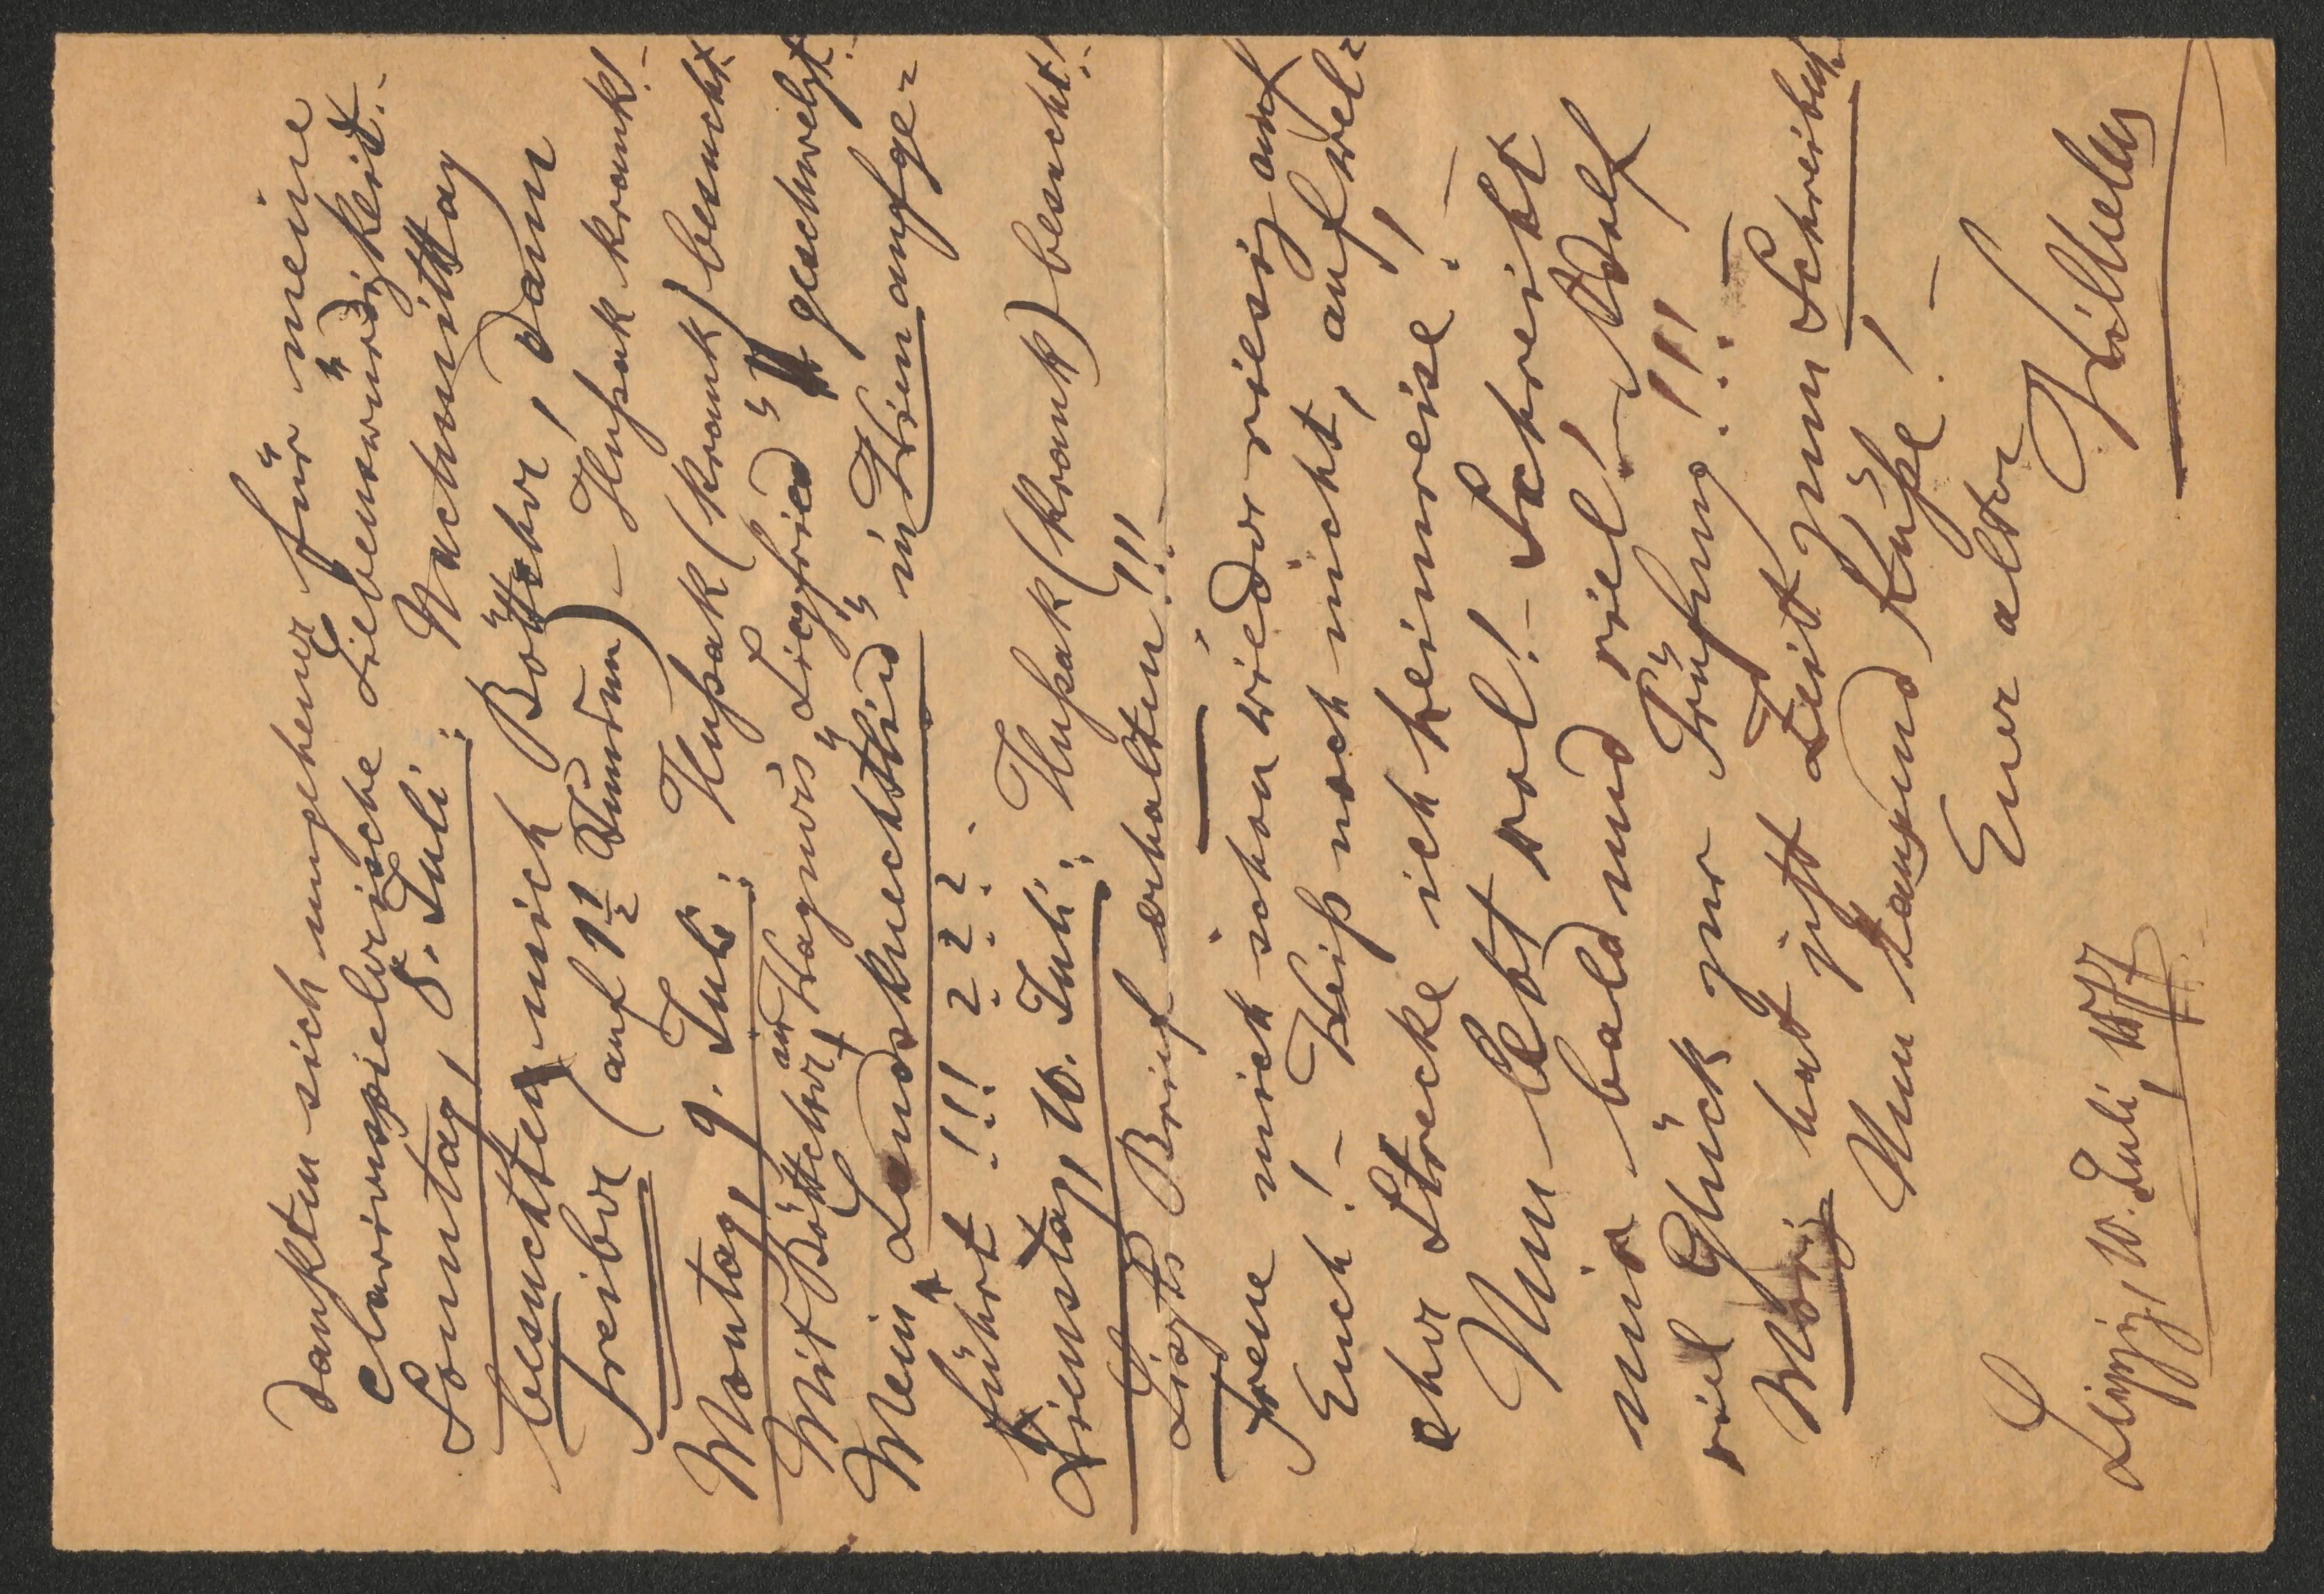 dankten sich ungeheuer für meine
clavierspielerische Liebenswürdigkeit.-
Sonntag, 8. Juli: Nachmittag
besuchten mich Böttcher, dann
Freiber (auf 1½ Stunden) - Hußak krank!-
Montag, 9. Juli: Hußak (krank) besucht.
Mit Böttcher in Wagners "Siegfried" geschwelgt.-
Mein "Landsknechtlied" in Wien aufge-
führt !!! ???
Dienstag, 10. Juli: Hußak (krank) besucht!-
Liszts Brief erhalten!!!-
Freue mich schon wieder riesig auf
Euch! - Weiß noch nicht, auf wel-
cher Strecke ich heimreise! -
Nun lebt wol! - Schreibt
mir bald und viel! - Adolf
viel Glück zur Prüfung!!! -
Moriz hat jetzt Zeit zum Schreiben.
Nun tausend Küße! -
Euer alter
Wilhelm
Leipzig, 10. Juli, 1877.